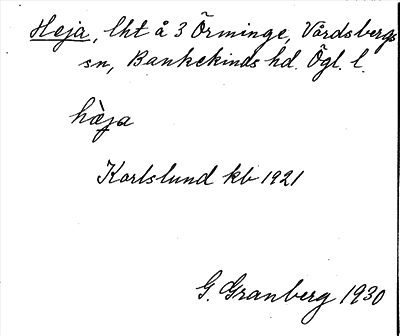 Heja, lht å 3 Örminge, Vårdsbergs
sn, Bankekinds hd. Ögl. l.
hèja
Karlslund kb 1921
G. Granberg 1930